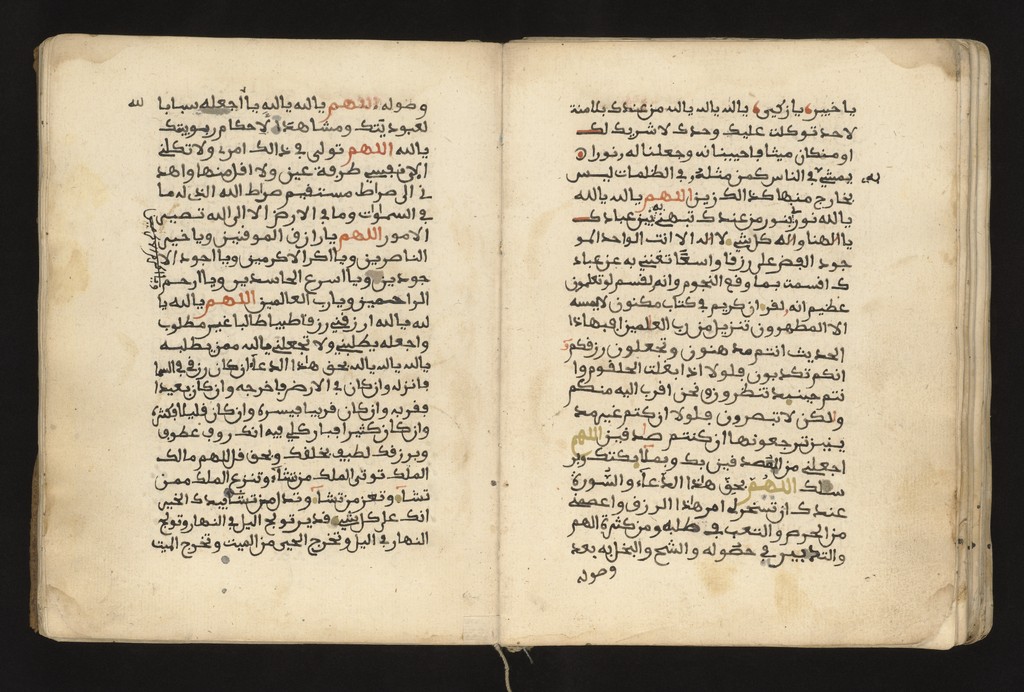 يا خبير يا زكي يا الله يا الله يا الله من عندك بلا منة
لاحد توكلت عليك وحدك لا شريك لك
او من كان ميتا فاحييناه وجعلنا له نورا
يمشي في الناس كمن مثله في الظلمات ليس
بخارج منها كذالك زين اللهم يا الله يا الله
يا الله نورني بنور من عندك عبادك
يا الاهنا واله كل شيء لا اله الا انت الواحد المو
جود افض علي رزقا واسعا تغنني به عن عباد
ك اقسمت بمواقع النجوم وانه لقسم لو تعلمون
عظيم انه لقران كريم في كتاب مكنون لا يمسه
الا المطهرون تنزيل من رب العلمين افبهاذا
الحديث انتم مدهنون وتجعلون رزقكم
انكم تكذبون فلولا اذا بلغت الحلقوم وا
نتم حينيذ تنظرون ونحن اقرب اليه منكم
ولكن لا تبصرون فلولا ان كنتم غير مد
ينين ترجعونها ان كنتم صدقين اللهم
اجعلني من المصدقين بك وبما
اللهم بحق هاذا الدعاء والسورة
عندك ان تسخر لي امر هاذا الرزق واعصمه
من الحرص والتعب في طلبه ومن كثرة الهم
والتدبير في حصوله والشح والبخل به بعد
وصوله
وصوله اللهم يا الله يا الله يا الله اجعله سببا
لله
لعبوديتك ومشاهدا لاحكام ربوبيتك
يا الله اللهم تولى في ذالك امري ولا تكلني
الى نفسي طرفة عين ولا اقل منها واهد
ني الى صراط مستقيم صراط الله الذي له ما
في السموات وما في الارض الا الى الله تصير
الامور اللهم يا رازق الموقنين ويا خير
الناصرين ويا اكرم الاكرمين ويا اجود الا
جودين ويا اسرع الحاسبين ويا ارحم
الراحمين ويا رب العالمين اللهم يا الله يا
لله يا الله ارزقني رزقا طيبا طالبا غير مطلوب
واجعله يطلبني ولا تجعلني يا الله ممن يطلبه
يا الله يا الله يا الله بحق هاذا الدعاء ان كان رزقي في السما
فانزله وان كان في الارض فاخرجه وان كان بعيدا
فقربه وان كان قريبا فيسره وان كان قليلا فكثره
وان كان كثيرا فبارك لي فيه انك روف عطوف
وبرزقك لطيف بخلقك وبحق قل اللهم مالك
الملك توتي الملك من تشاء وتنزع الملك ممن
تشاء وتعز من تشاء وتذل من تشاء بيدك الخير
انك على كل شيء قدير تولج اليل في النهار وتولج
النهار في اليل وتخرج الحي من الميت وتخرج الميت